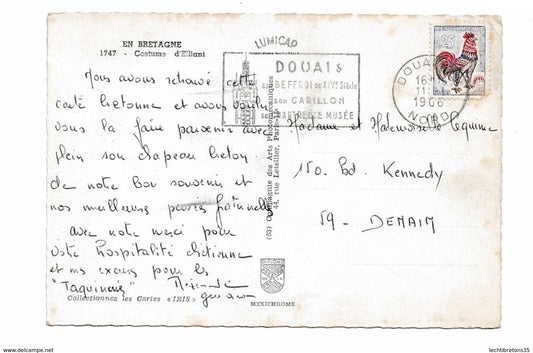 EN BRETAGNE
1747 - Costume d'Elliant
LUMICAP
Nous avons retrouvé cette
carte bretonne et avons voulu
vous la faire parvenir avec
plein son chapeau breton
de notre bon souvenir et
nos meilleures pensées
avec notre merci pour
votre hospitalité chrétienne
et mes excuses pour les
"Taquineries"
Collectionnez les Cartes «IRIS»
DOUAI &
BEFFROI DU XIVe Siècle
son CARILLON
sa CHARTREUSE MUSÉE
DOUAI
16H
1966
NORD
0,25
(63) Compagnie des Arts Photomécaniques
44, rue Letellier, Paris-15
Madame et Mademoiselle
150. Bd. Kennedy
59 - DENAIN
MEXICHROME
lechtibretons35